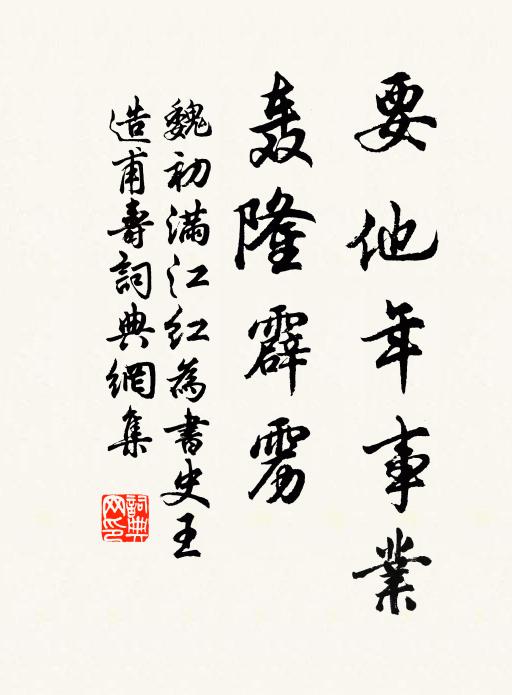 要他年事業
轰隆霹雳
魏初滿江紅為書史王
造甫壽詞典網集
詞典
网印